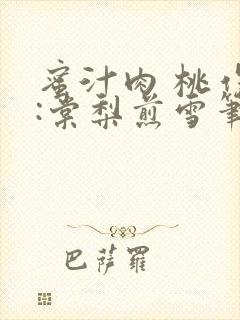 蜜汁肉桃作
:棠梨煎雪筆
巴薩羅